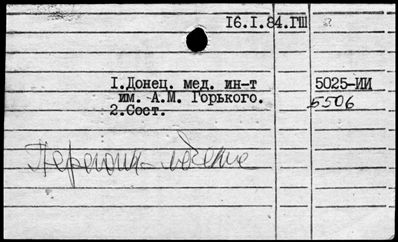 16.I.84.ГШ
I.Донец. мед. ин-т
им. А.М. Горького.
2.Сост.
5025-ИИ
5506